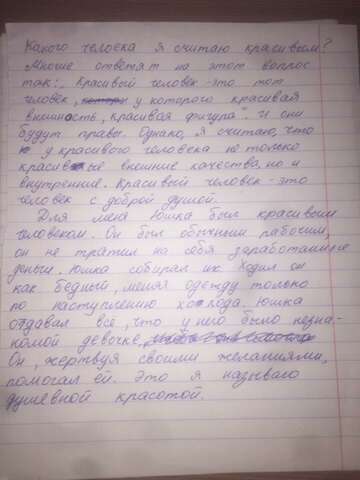 Какого человека я считаю красивым?
Многие ответят на этот вопрос
так: „Красивый человек - это тот
человек, у которого красивая
внешность, красивая фигура". И они
будут правы. Однако, я считаю, что
у красивого человека не только
красивые внешние качества, но и
внутренние. Красивый человек - это
человек с доброй душой.
Для меня Юшка был красивым
человеком. Он был обычным рабочим,
он не тратил на себя заработанные
деньги. Юшка собирал их. Ходил он
как бедный, менял одежду только
по наступлению холода. Юшка
отдавал все, что у него было незна-
комой девочке.
Он, жертвуя своими желаниями,
помогал ей. Это я называю
душевной красотой.